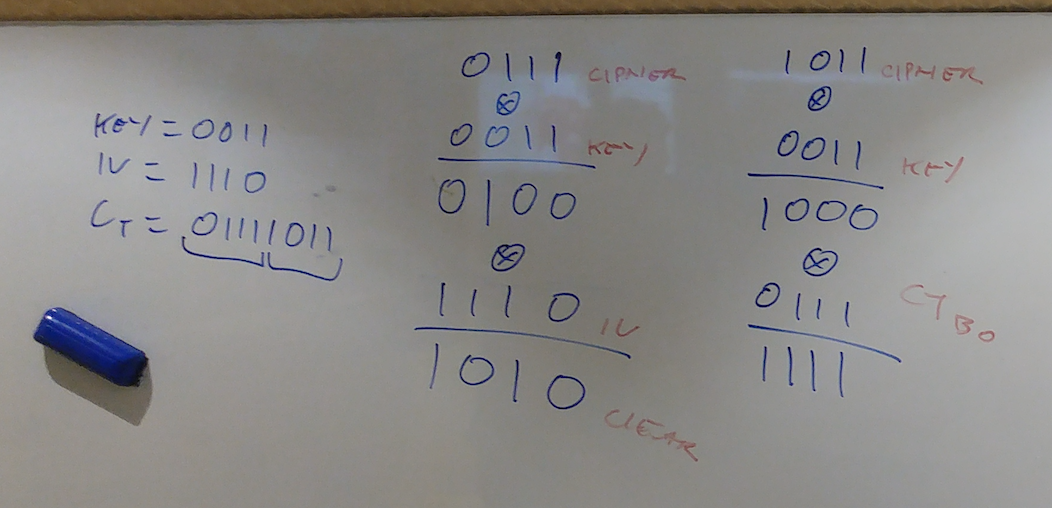 KEY = 0011
IV = 1110
CT = 01111011
0111 CIPHER
⊗
0011 KEY
0100
⊗
1110 IV
1010 CLEAR
1011 CIPHER
⊗
0011 KEY
1000
⊗
0111 CT B0
1111